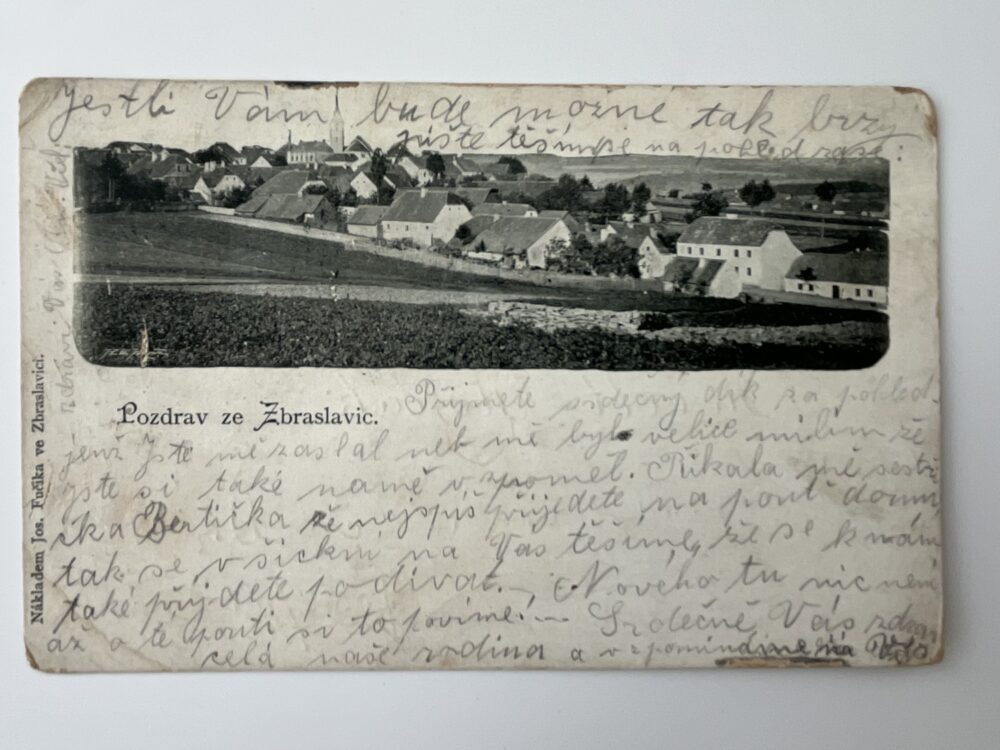 Jestli Vám bude možné tak brzy
pište těšíme se na pohled
Pozdrav ze Zbraslavic.
Nákladem Jos. Fučíka ve Zbraslavici.
Přijmete srdečný dík za pohled
jenž Jste mě zaslal neb mě bylo velice milim že
jste si také namě vzpoměl. Řikala mě sestř
ička Bertička že nejspíš přijedete na pouť domu
tak se všickni na Vás těšíme, že se k nám
také přijdete podivat. Nového tu nic není
až o té pouti si to povíme. Srdečně Vás zdraví
celá naše rodina a vzpomínáme na Vás